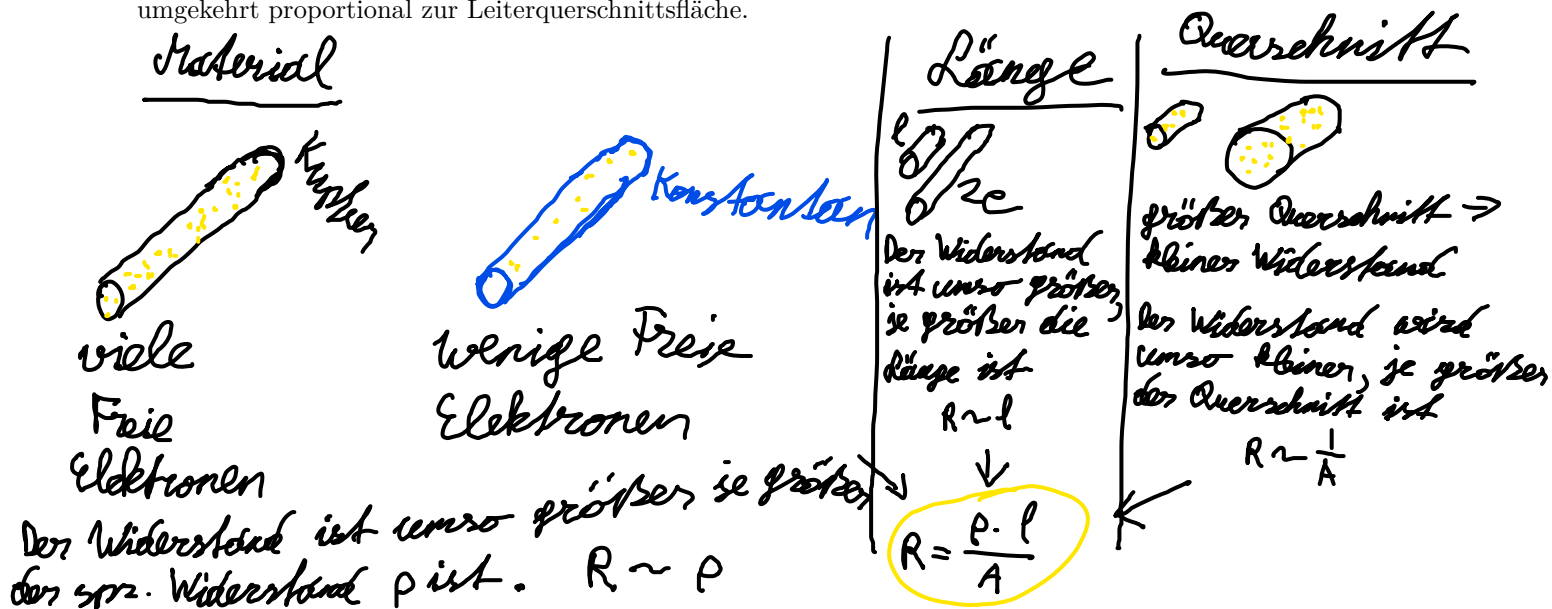 umgekehrt proportional zur Leiterquerschnittsfläche.
Material
Kupfer
viele
Freie
Elektronen
Konstantan
wenige Freie
Elektronen
Der Widerstand ist umso größer je größer
der spz. Widerstand ρ ist. R ~ ρ
Länge
l
2l
Der Widerstand
ist umso größer,
je größer die
Länge ist
R ~ l
R = ρ · l / A
Querschnitt
größer Querschnitt →
kleiner Widerstand
Der Widerstand wird
umso kleiner, je größer
der Querschnitt ist
R ~ 1/A